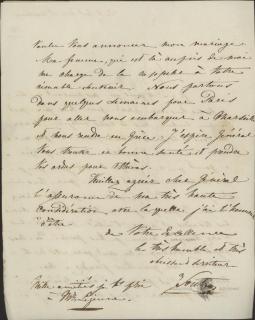 vous annoncer mon mariage.
Ma femme, qui est ici auprès de moi
me charge de la à votre
aimable souvenir. Nous partons
dans quelques semaines pour Paris
pour aller nous embarquer à Marseille
et nous rendre en Grèce. J'espère Général
vous trouver en bonne santé et prendre
vos ordres pour Athènes.
Veuillez agréer cher Général
l'assurance de ma très haute
considération, avec laquelle j'ai l'honneur
d'être
de Votre Excellence
le très humble et très
obéissant serviteur
amitiés
à Mr